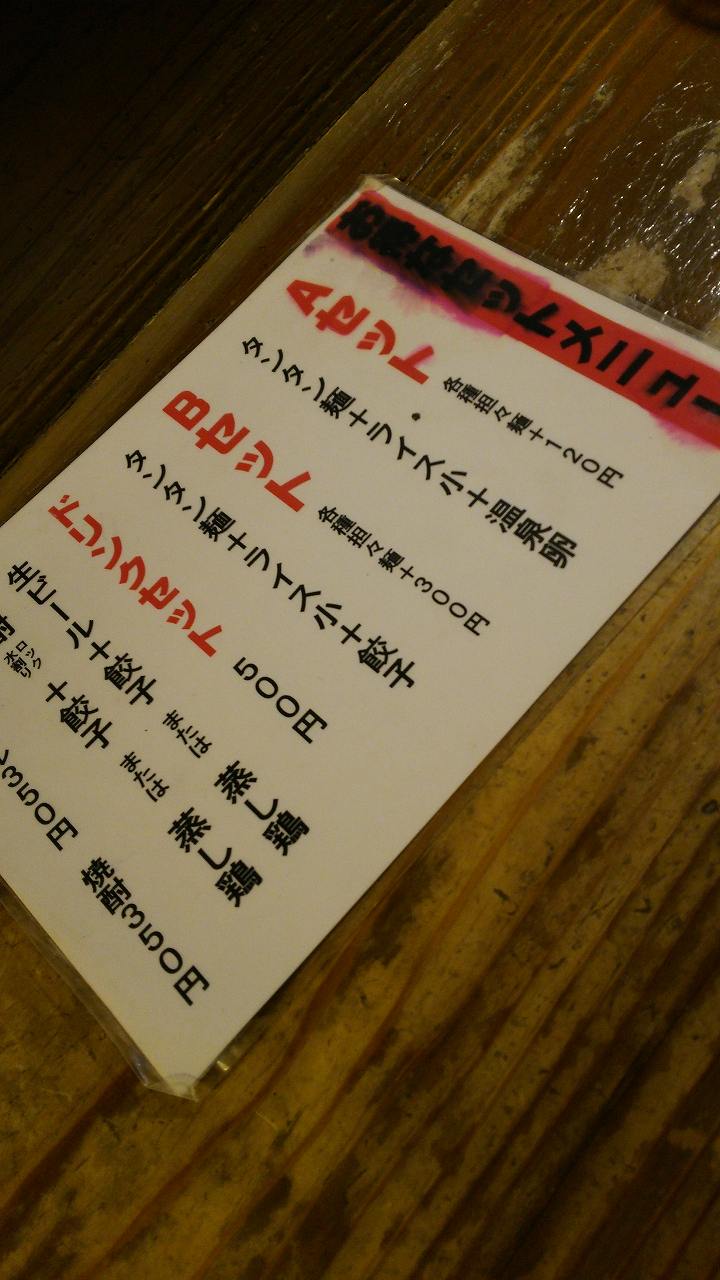 お得なセットメニュー
Aセット 各種担々麺+120円
タンタン麺+ライス小+温泉卵
Bセット 各種担々麺+300円
タンタン麺+ライス小+餃子
ドリンクセット 500円
生ビール+餃子 または 蒸し鶏
酎 ロック 水割り +餃子 または 蒸し鶏
350円 焼酎350円